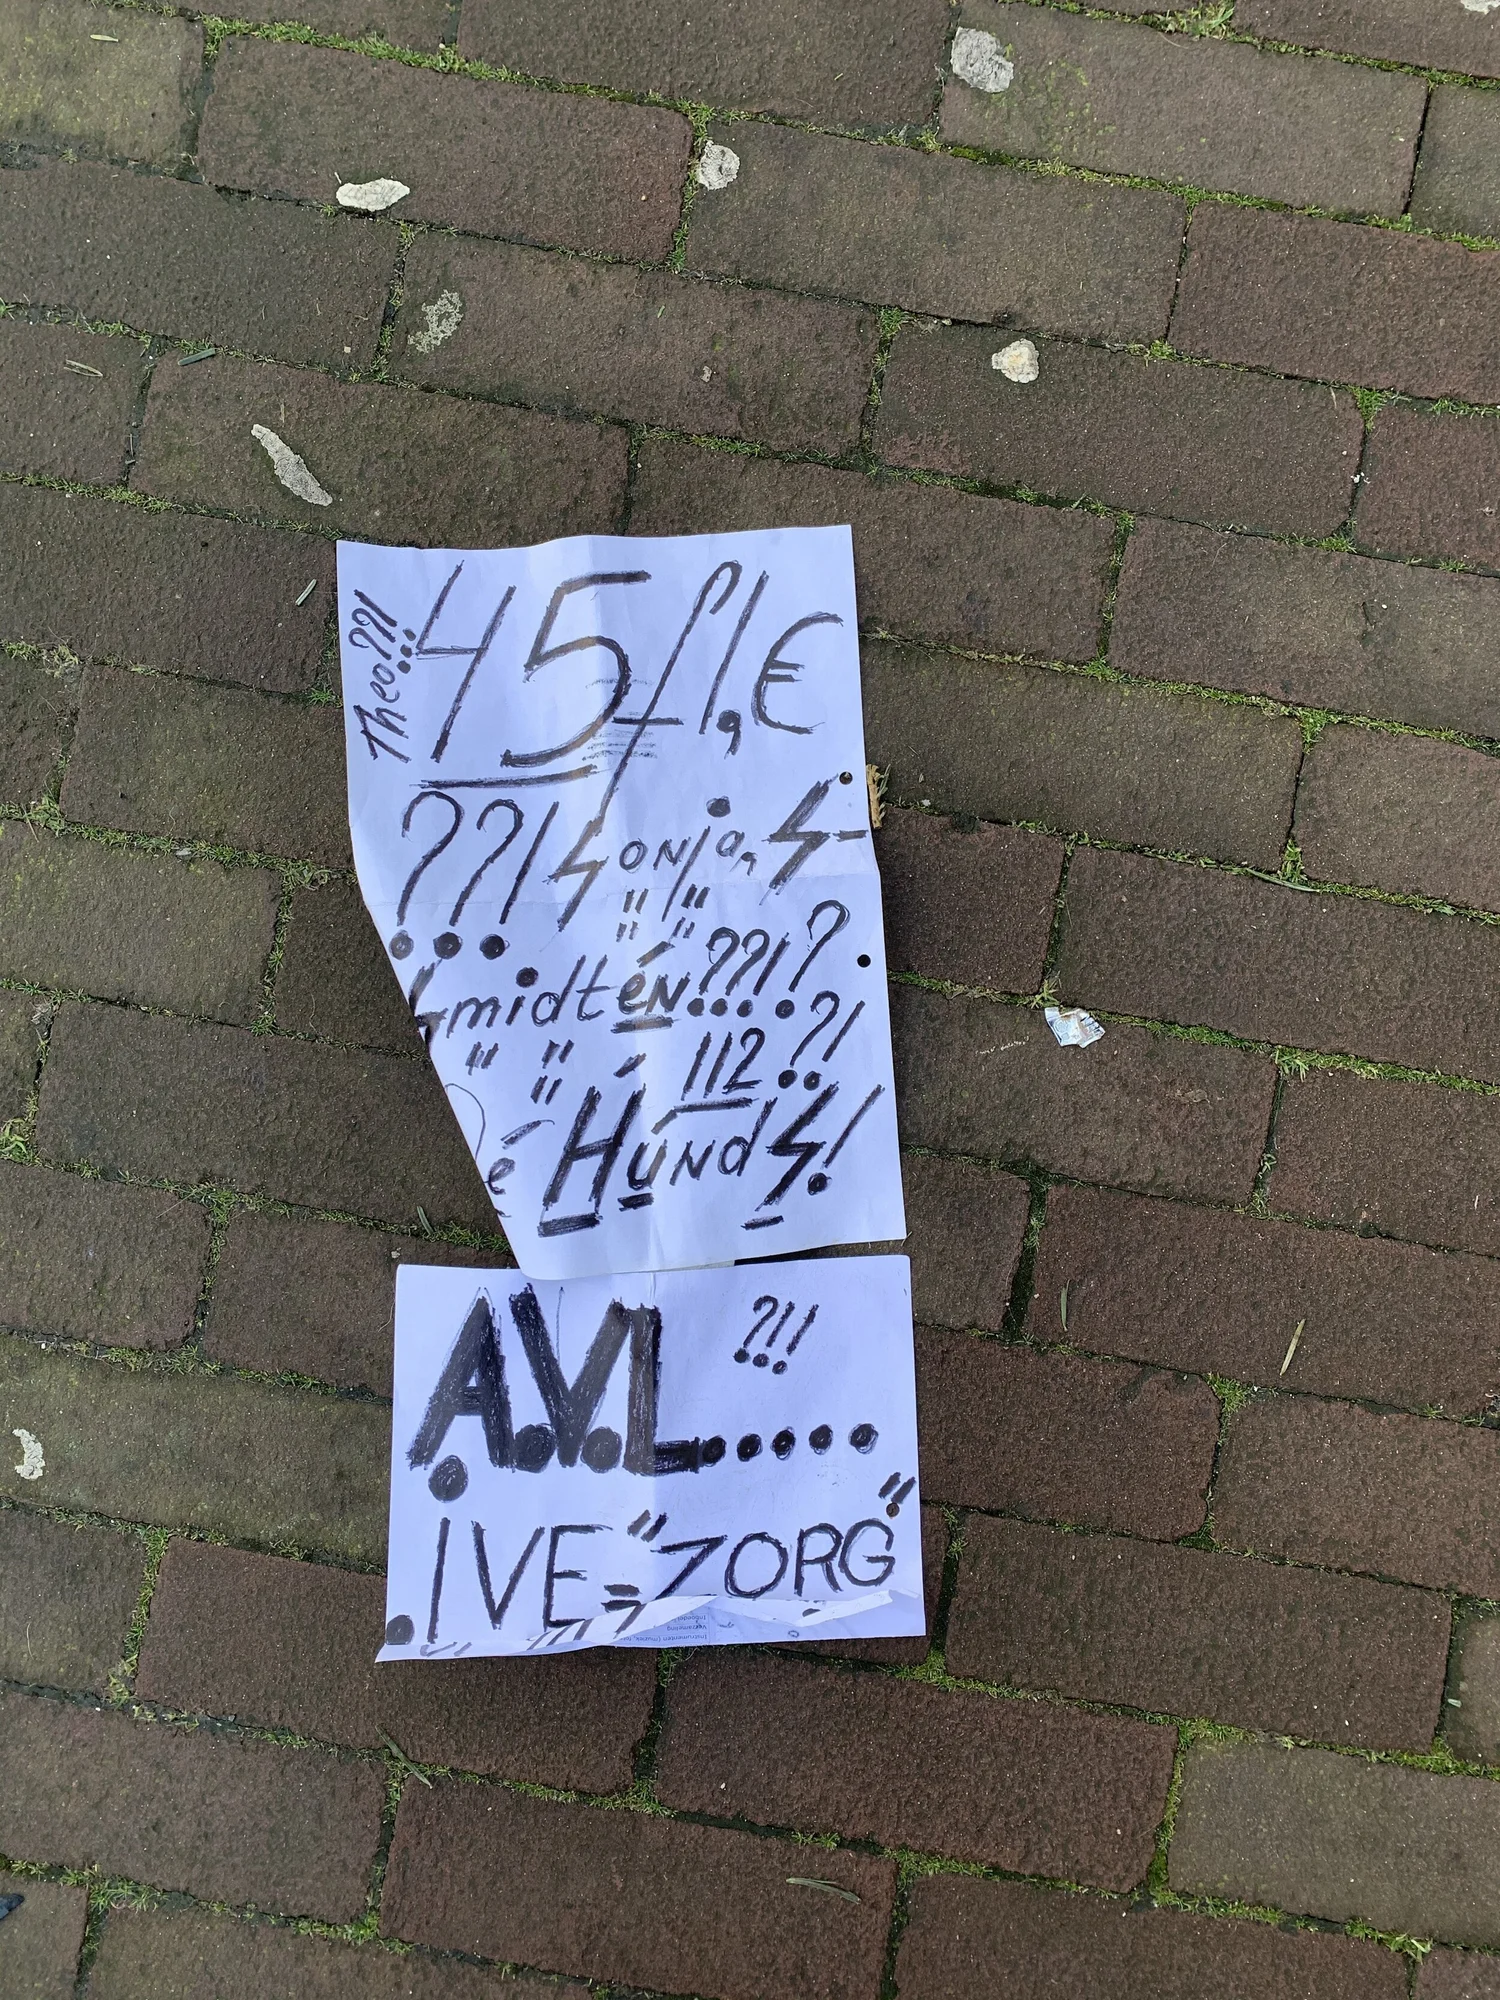 Theo??!
45 fl,€
??! Sonja, S-
Smidtén??!?
112?!
é HúndS!
A.V.L..... ?!!
.IVE="ZORG"